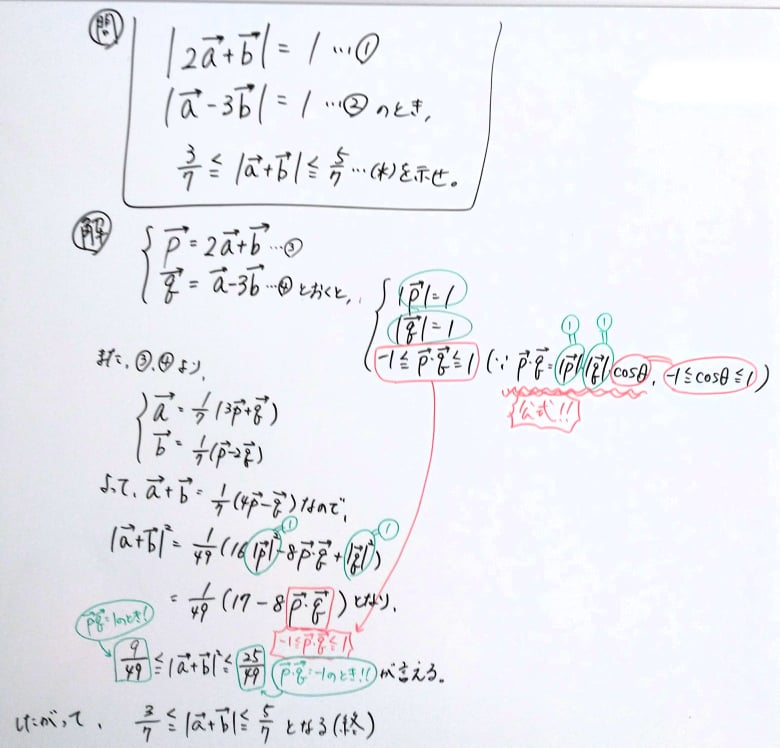 問
|2a⃗+b⃗| = 1 …①
|a⃗-3b⃗| = 1 …② のとき、
3/7 ≦ |a⃗+b⃗| ≦ 5/7 …(*)を示せ。
解
{ p⃗ = 2a⃗+b⃗ …③
q⃗ = a⃗-3b⃗ …④ とおくと、
{ |p⃗|=1
|q⃗|=1
-1≦p⃗・q⃗≦1 (∵ p⃗・q⃗=|p⃗||q⃗|cosθ, -1≦cosθ≦1)
1 1
公式!!
また、③,④より、
{ a⃗ = 1/7 (3p⃗+q⃗)
b⃗ = 1/7 (p⃗-2q⃗)
よって、a⃗+b⃗ = 1/7 (4p⃗-q⃗)なので、
|a⃗+b⃗|² = 1/49 (16|p⃗|²-8p⃗・q⃗+|q⃗|²)
1 1
= 1/49 (17-8p⃗・q⃗)となり、
-1≦p⃗・q⃗≦1
p⃗・q⃗=1のとき!
9/49 ≦ |a⃗+b⃗|² ≦ 25/49 が言える。
p⃗・q⃗=-1のとき!!
したがって、 3/7 ≦ |a⃗+b⃗| ≦ 5/7 となる(終)